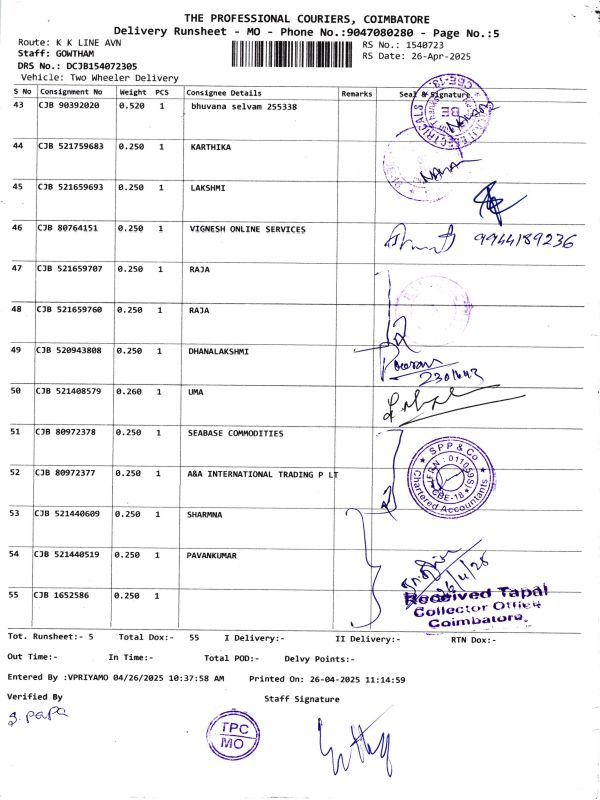 THE PROFESSIONAL COURIERS, COIMBATORE
Delivery Runsheet - MO - Phone No.:9047080280 - Page No.:5
Route: K K LINE AVN
RS No.: 1540723
Staff: GOWTHAM
RS Date: 26-Apr-2025
DRS No.: DCJB154072305
Vehicle: Two Wheeler Delivery
S No Consignment No Weight PCS Consignee Details Remarks Seal & Signature
43 CJB 90392020 0.520 1 bhuvana selvam 255338
44 CJB 521759683 0.250 1 KARTHIKA
45 CJB 521659693 0.250 1 LAKSHMI
46 CJB 80764151 0.250 1 VIGNESH ONLINE SERVICES 9944189236
47 CJB 521659707 0.250 1 RAJA
48 CJB 521659760 0.250 1 RAJA
49 CJB 520943808 0.250 1 DHANALAKSHMI
50 CJB 521408579 0.260 1 UMA
51 CJB 80972378 0.250 1 SEABASE COMMODITIES
SPP & Co
FRN: 017059S
CBE-18
Chartered Accountants
52 CJB 80972377 0.250 1 A&A INTERNATIONAL TRADING P LT
53 CJB 521440609 0.250 1 SHARMNA
54 CJB 521440519 0.250 1 PAVANKUMAR
26/4/25
55 CJB 1652586 0.250 1
Received Tapal
Collector Office
Coimbatore.
Tot. Runsheet:- 5 Total Dox:- 55 I Delivery:- II Delivery:- RTN Dox:-
Out Time:- In Time:- Total POD:- Delvy Points:-
Entered By :VPRIYAMO 04/26/2025 10:37:58 AM Printed On: 26-04-2025 11:14:59
Verified By Staff Signature
S. PAPA
TPC
MO